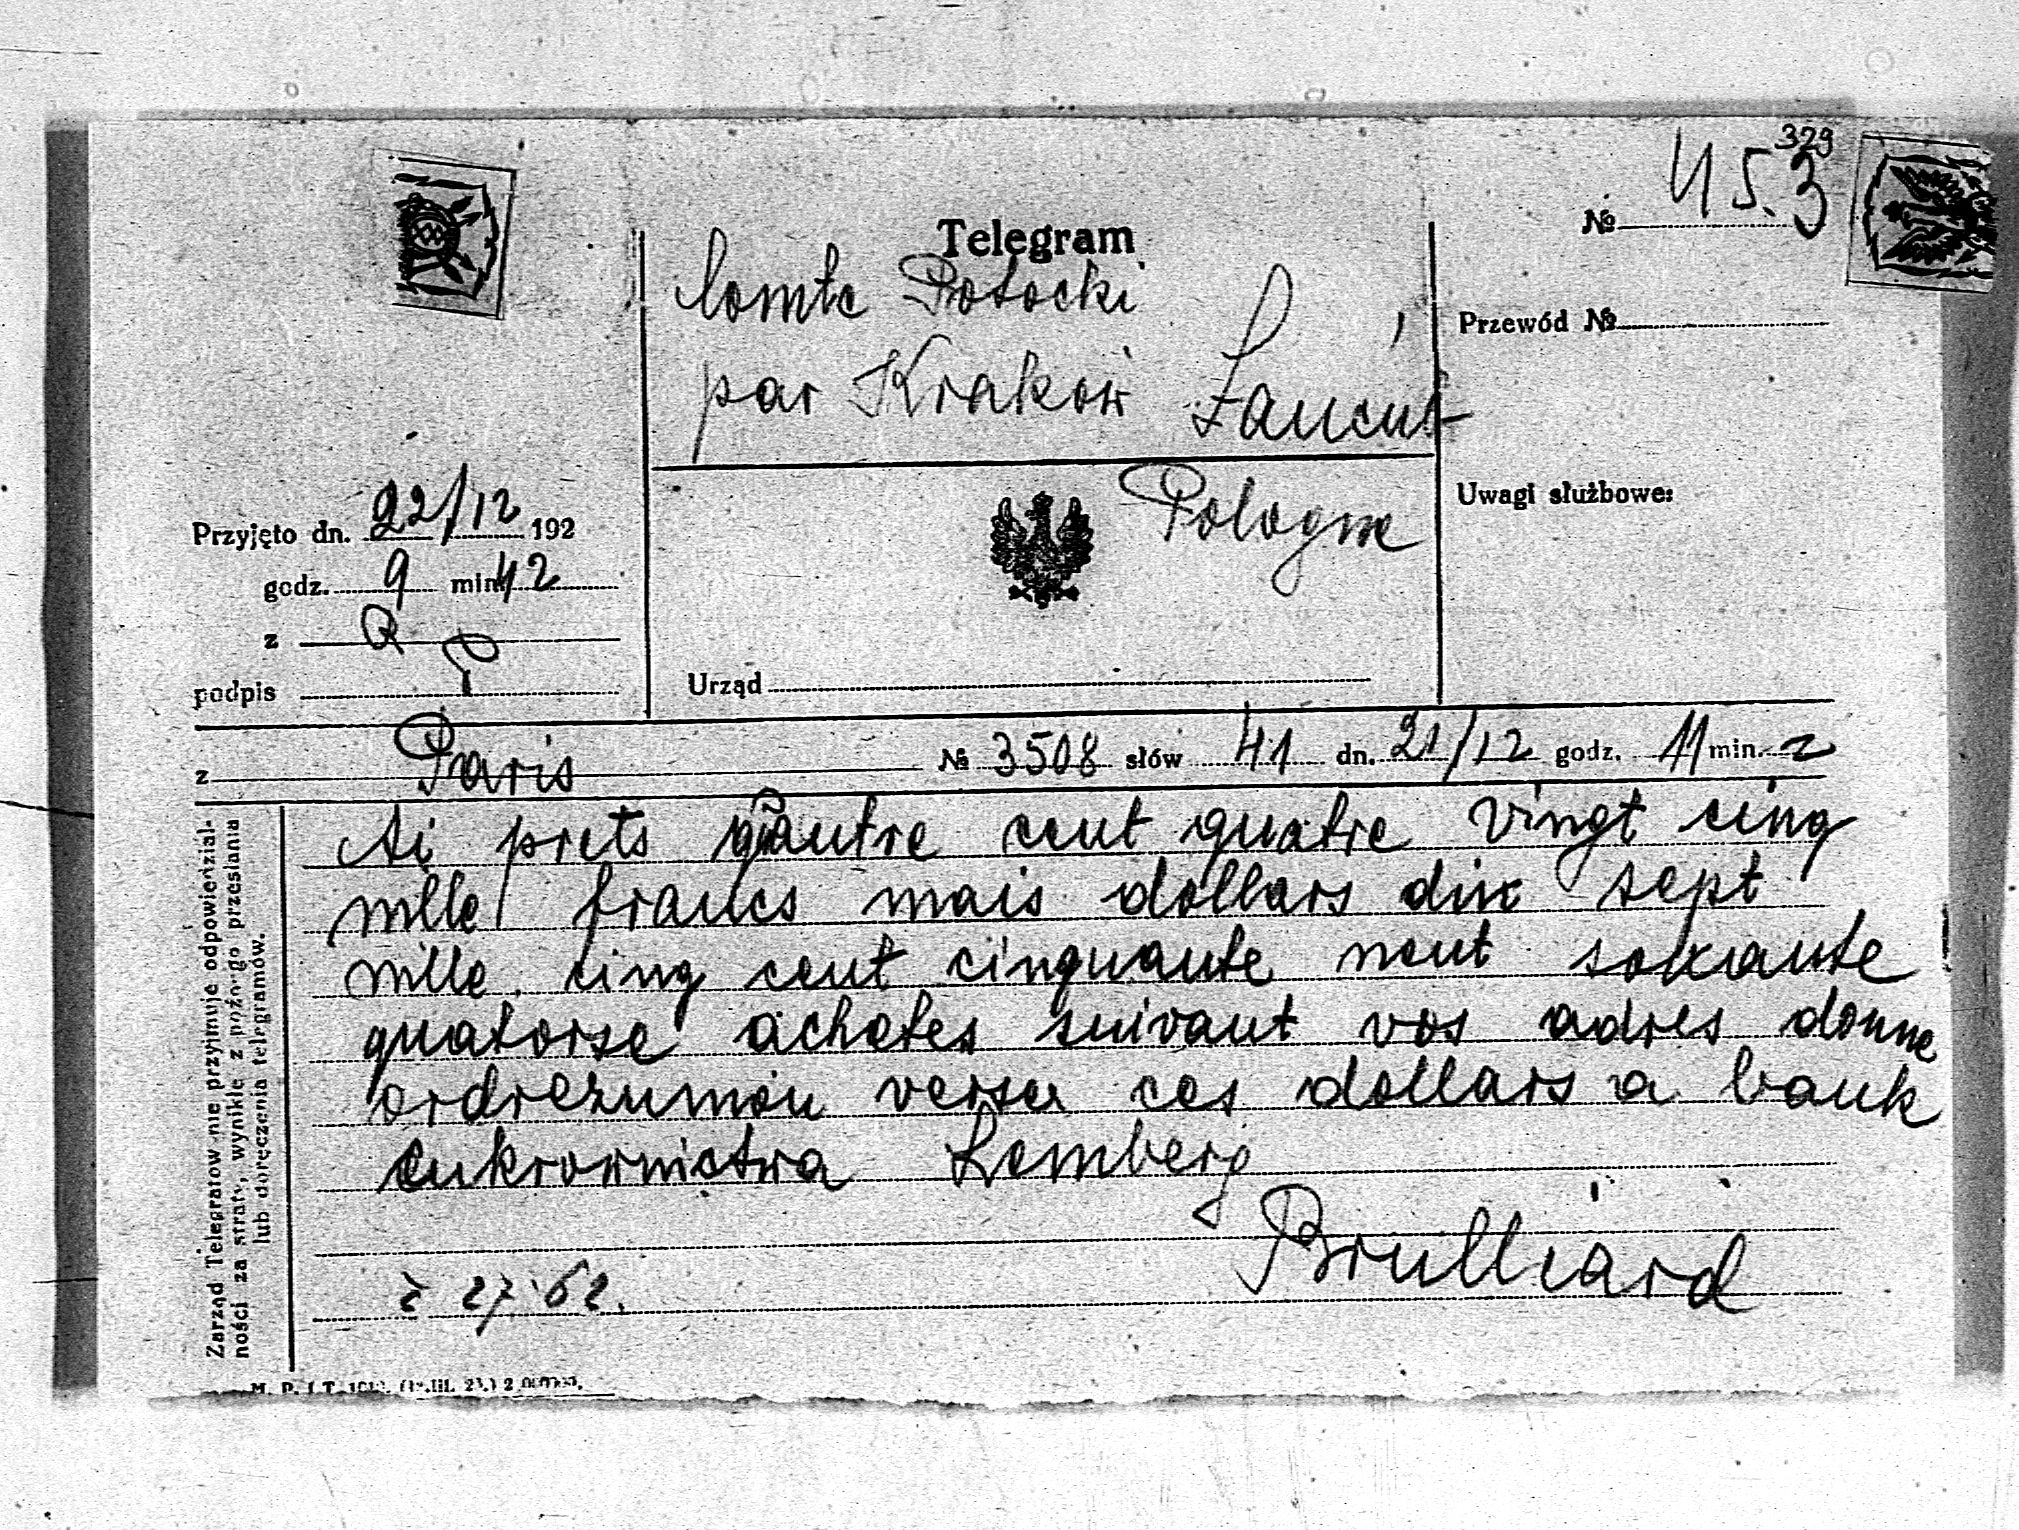 329
№ 45.3
Telegram
Comte Potocki
par Kraków Łańcut
Pologne
Przewód №
Uwagi służbowe:
Przyjęto dn. 22/12 192
godz. 9 min. 42
z R
podpis P
Urząd
z Paris № 3508 słów 41 dn. 21/12 godz. 11 min. 2
Ai prets quautre cent quatre vingt cinq
mlle francs mais dollars dix sept
mille cinq cent cinquante neut soixante
quatorse achetes suivant vos adres donne
ordrezumou verser ces dollars a bank
cukrownictwa Lemberg
Brulliard
27 62.
Zarząd Telegrafów nie przyjmuje odpowiedzial-
ności za straty, wynikłe z późnego przesłania
lub doręczenia telegramów.